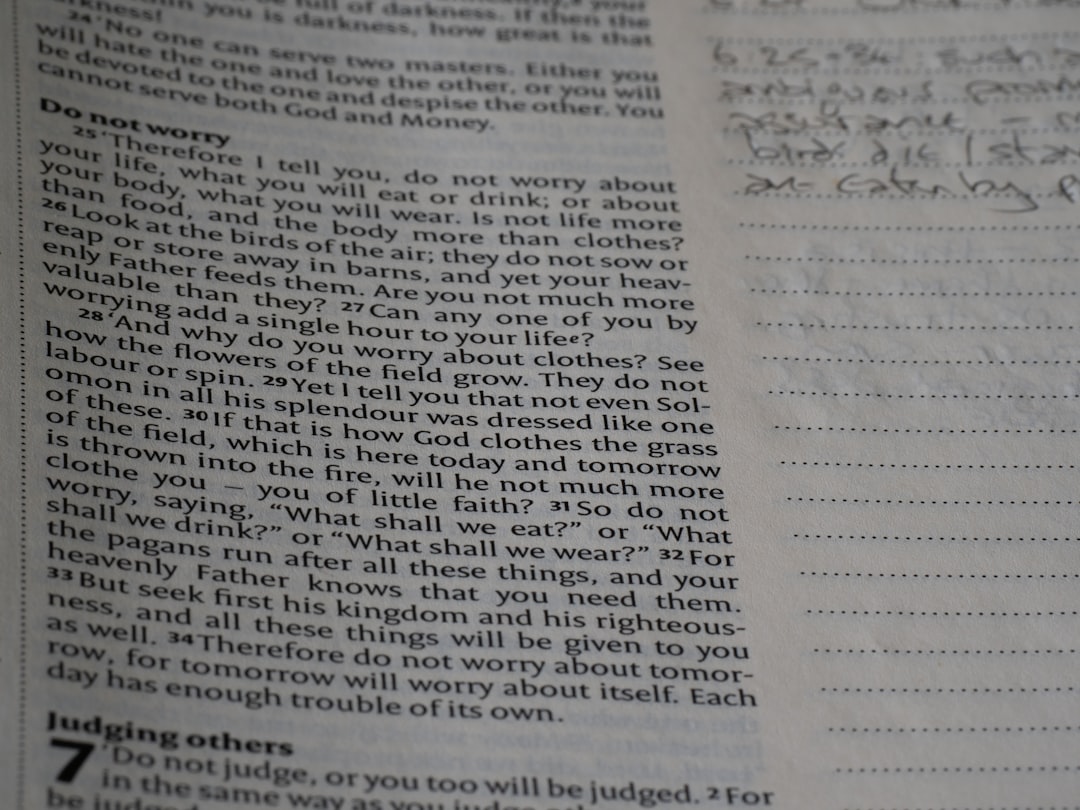 full of darkness. If then the
within you is darkness, how great is that
darkness!
24 ‘No one can serve two masters. Either you
will hate the one and love the other, or you will
be devoted to the one and despise the other. You
cannot serve both God and Money.
Do not worry
25 ‘Therefore I tell you, do not worry about
your life, what you will eat or drink; or about
your body, what you will wear. Is not life more
than food, and the body more than clothes?
26 Look at the birds of the air; they do not sow or
reap or store away in barns, and yet your heav-
enly Father feeds them. Are you not much more
valuable than they? 27 Can any one of you by
worrying add a single hour to your life e?
28 ‘And why do you worry about clothes? See
how the flowers of the field grow. They do not
labour or spin. 29 Yet I tell you that not even Sol-
omon in all his splendour was dressed like one
of these. 30 If that is how God clothes the grass
of the field, which is here today and tomorrow
is thrown into the fire, will he not much more
clothe you – you of little faith? 31 So do not
worry, saying, “What shall we eat?” or “What
shall we drink?” or “What shall we wear?” 32 For
the pagans run after all these things, and your
heavenly Father knows that you need them.
33 But seek first his kingdom and his righteous-
ness, and all these things will be given to you
as well. 34 Therefore do not worry about tomor-
row, for tomorrow will worry about itself. Each
day has enough trouble of its own.
Judging others
7 ‘Do not judge, or you too will be judged. 2 For
in the same way as you judge
be judged
6:25-34 such a
assurance -